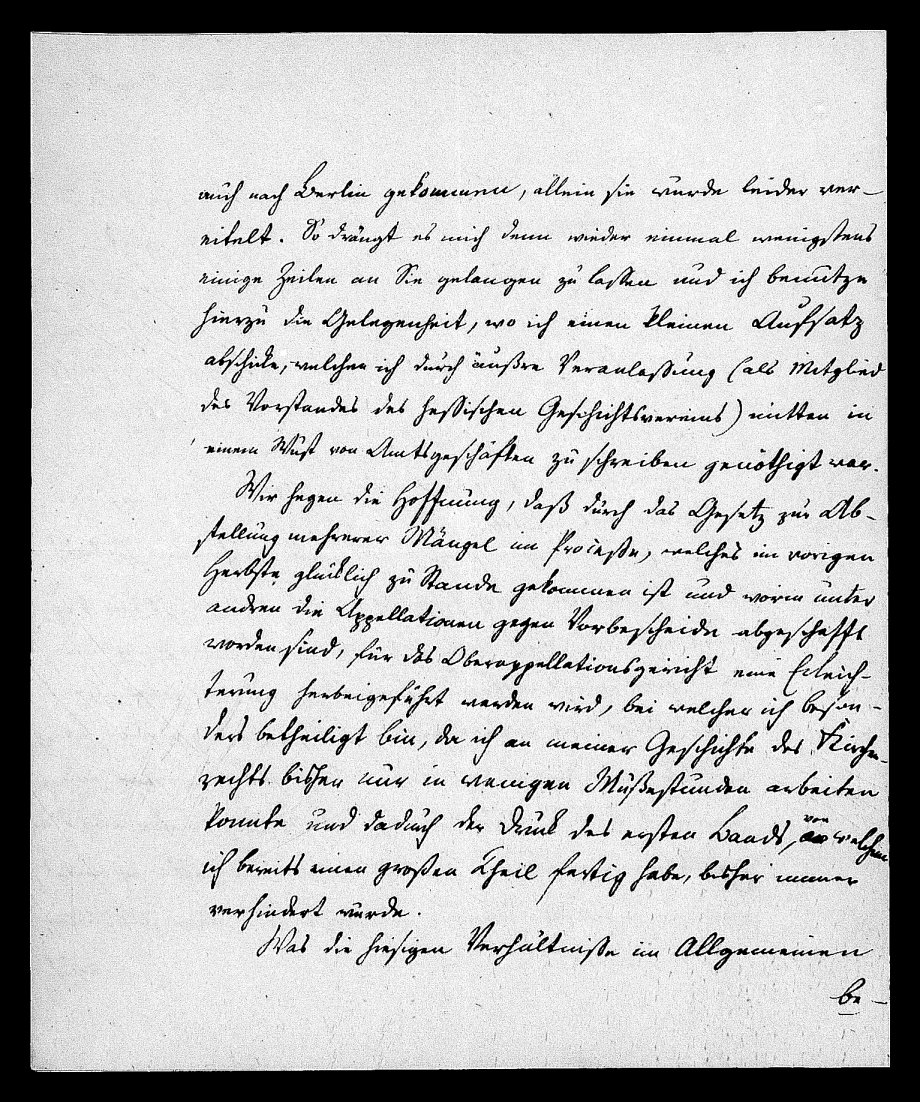 auch nach Berlin gekommen, allein sie wurde leider ver-
eitelt. So drängt es mich denn wieder einmal wenigstens
einige Zeilen an Sie gelangen zu lassen und ich benutze
hierzu die Gelegenheit, wo ich einen kleinen Aufsatz
abschicke, welchen ich durch äußre Veranlassung (als Mitglied
des Vorstandes des hessischen Geschichtsvereins) mitten in
einem Wust von Amtsgeschäften zu schreiben genöthigt war.
Wir hegen die Hoffnung, daß durch das Gesetz zur Ab-
stellung mehrerer Mängel im Processe, welches im vorigen
Herbste glücklich zu Stande gekommen ist und worin unter
andren die Appellationen gegen Vorbescheide abgeschafft
worden sind, für das Oberappellationsgericht eine Erleich-
terung herbeigeführt werden wird, bei welcher ich beson-
ders betheiligt bin, da ich an meiner Geschichte des Kirchen-
rechts bisher nur in wenigen Mußestunden arbeiten
konnte und daduch der Druck des ersten Bands, von welchem
ich bereits einen großen Theil fertig habe, bisher immer
verhindert wurde.
Was die hiesigen Verhältnisse im Allgemeinen
be-